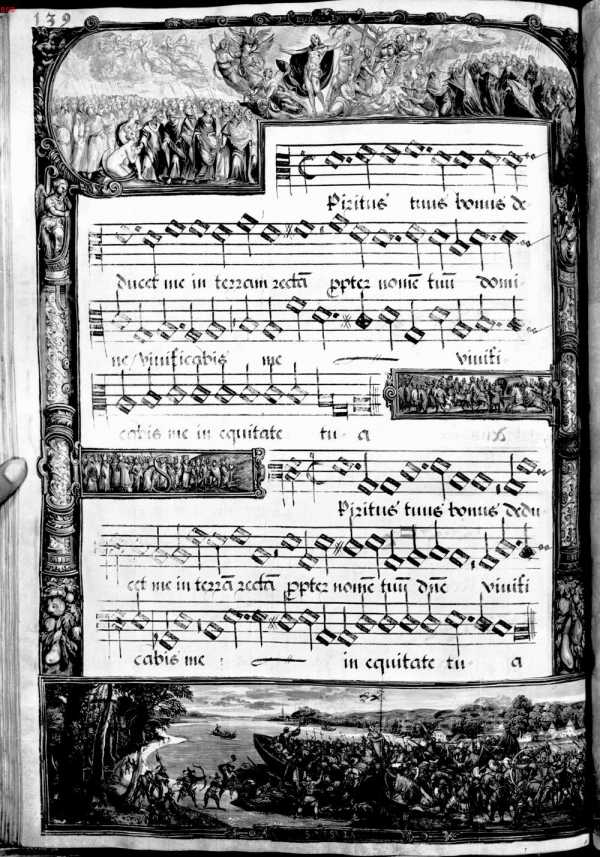 139
Piritus tuus bonus de-
ducet me in terram rectā ꝓpter nomē tuū domi-
ne/ vivificabis me vivifi-
cabis me in equitate tu-a
Piritus tuus bonus dedu
cet me in terrā rectā ꝓpter nomē tuū dn̄e vivifi
cabis me in equitate tu-a